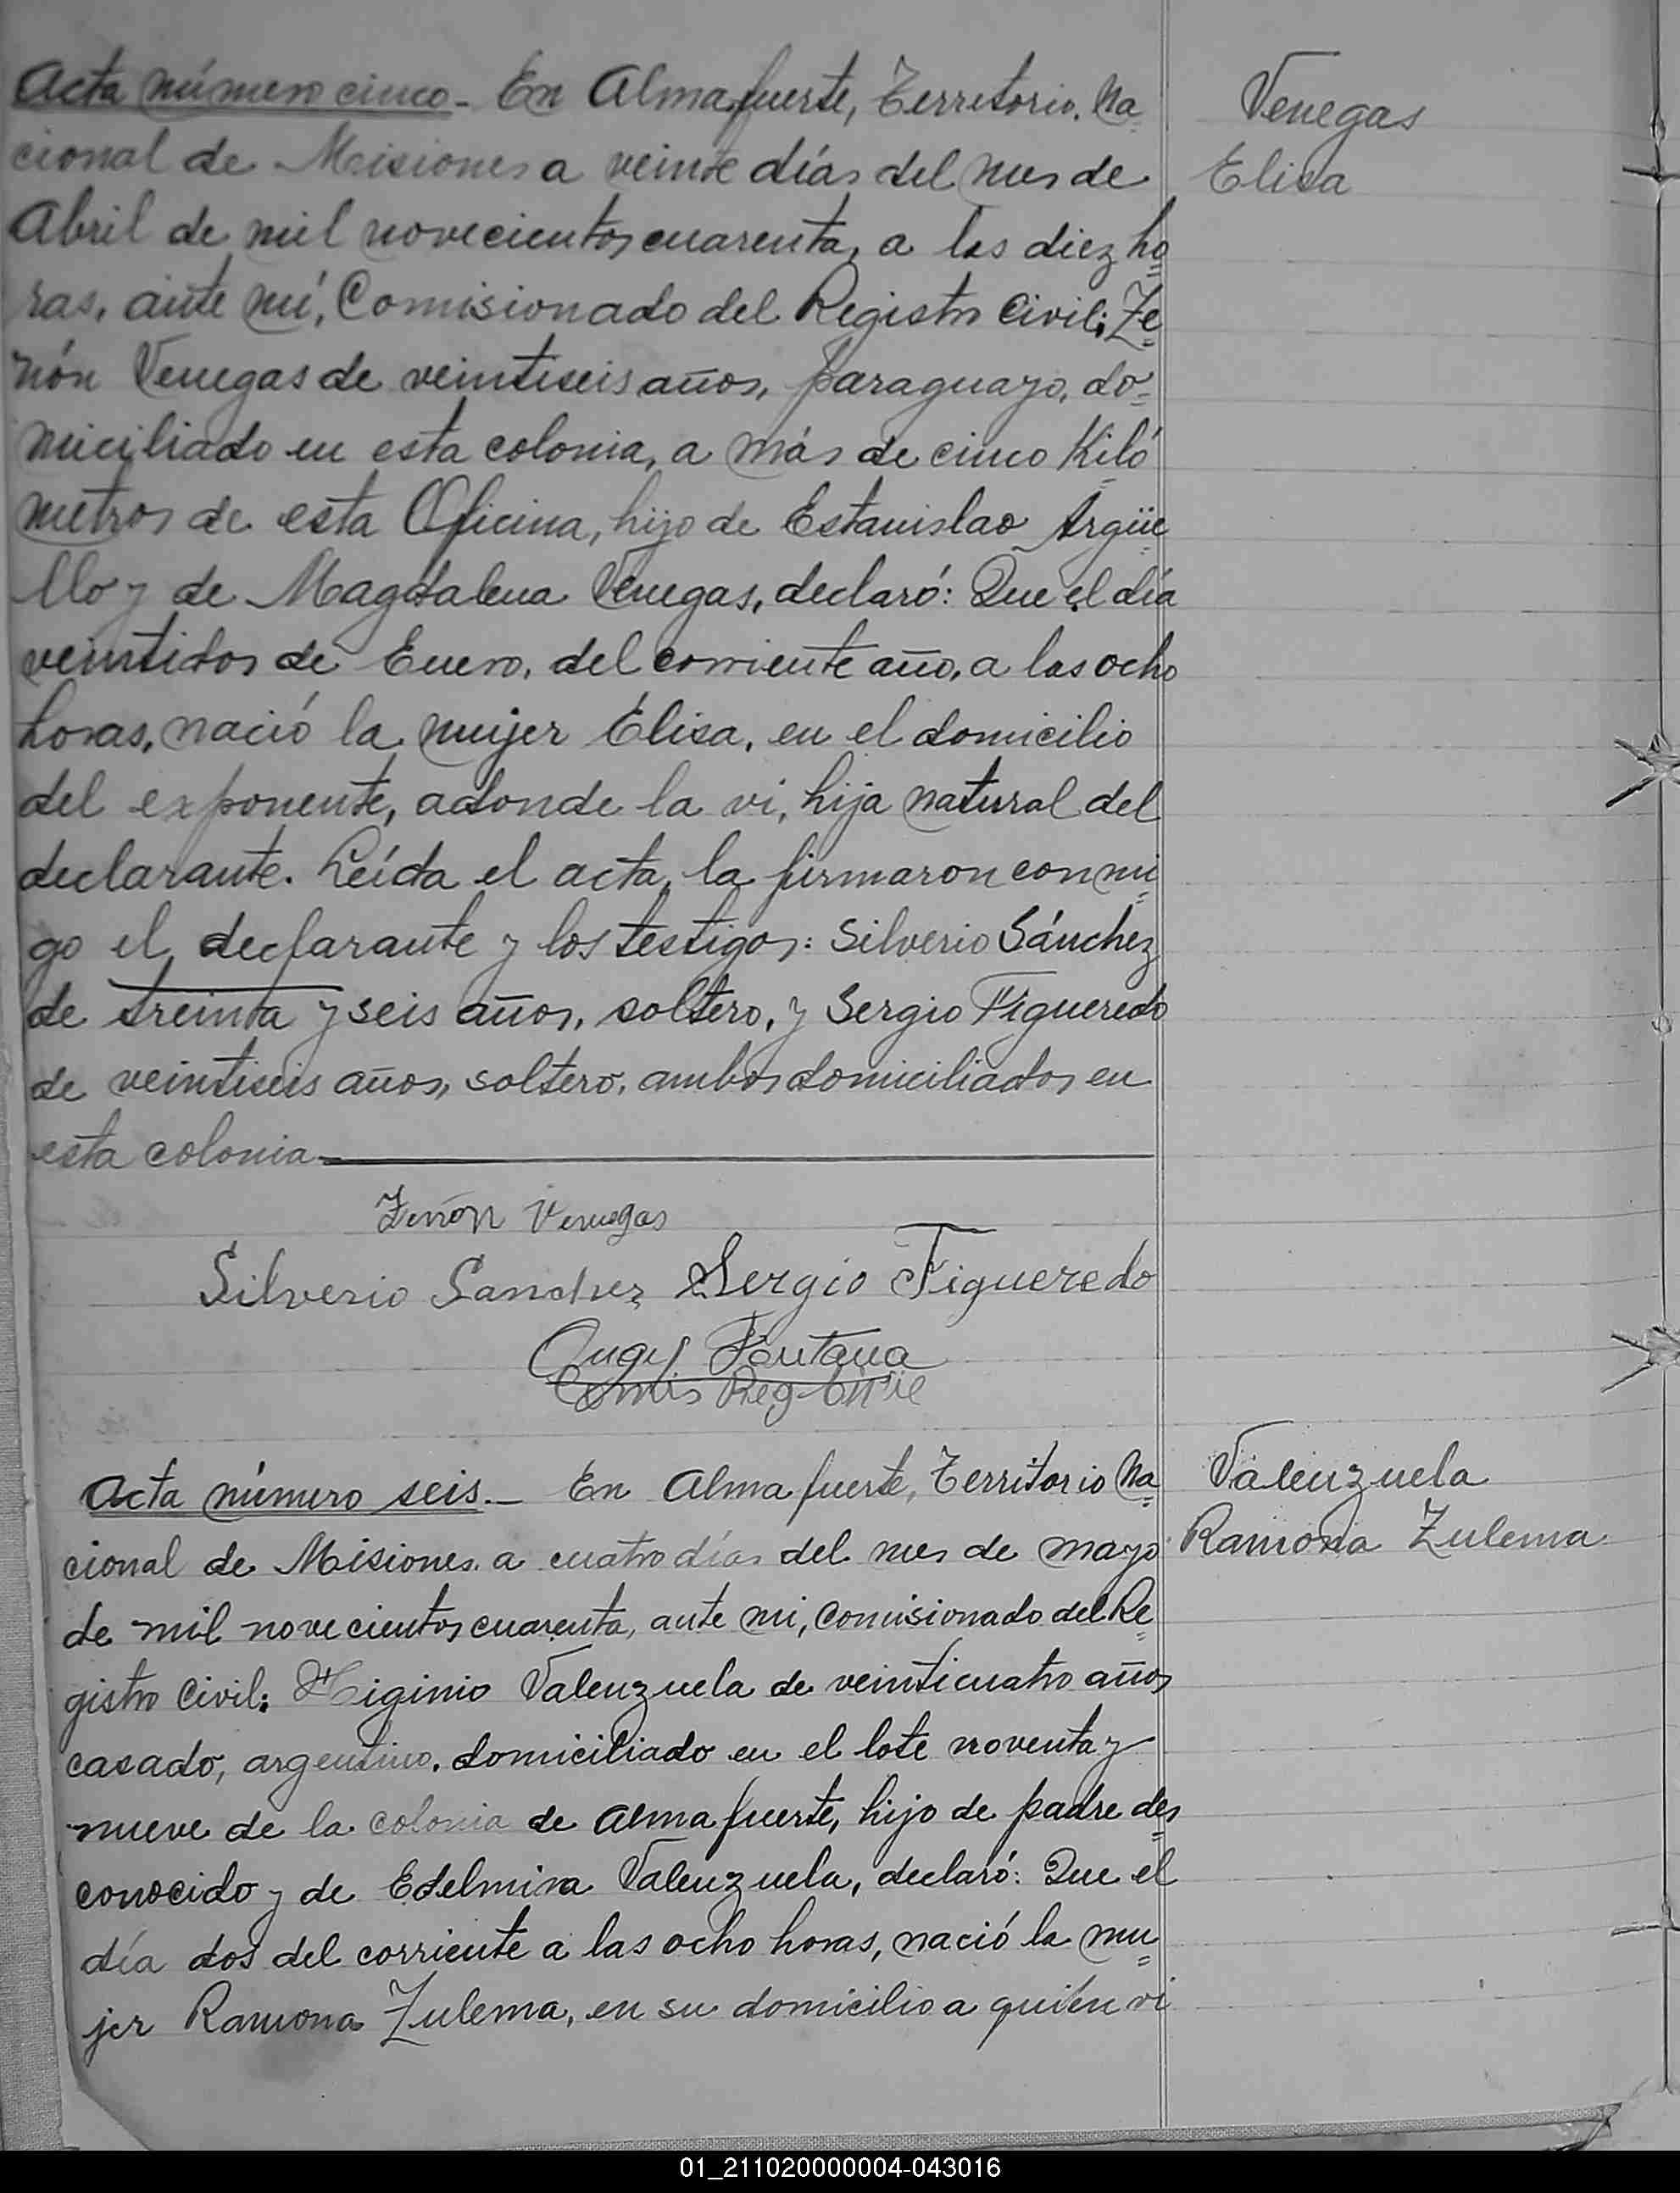 Acta número cinco - En Almafuerte, Territorio Na
cional de Misiones a veinte días del mes de
Abril de mil novecientos cuarenta, a las diez ho
ras, ante mí, Comisionado del Registro Civil: Ze
nón Venegas de veintiseis años, paraguayo, do
miciliado en esta colonia, a más de cinco Kiló
metros de esta Oficina, hijo de Estanislao Argüe
llo y de Magdalena Venegas, declaró: Que el día
veintidos de Enero, del corriente año, a las ocho
horas, nació la mujer Elisa, en el domicilio
del exponente, adonde la vi, hija natural del
declarante. Leída el acta, la firmaron conmi
go el declarante y los testigos: Silverio Sánchez
de treinta y seis años, soltero, y Sergio Figueredo
de veintiseis años, soltero, ambos domiciliados en
esta colonia
Venegas
Elisa
Zenón Venegas
Silverio Sanchez Sergio Figueredo
Fontana
Comis Reg Civil
Acta número seis. - En Almafuerte, Territorio Na
cional de Misiones a cuatro días del mes de mayo
de mil novecientos cuarenta, ante mi, Comisionado del Re
gistro Civil: Higinio Valenzuela de veinticuatro años
casado, argentino, domiciliado en el lote noventa y
nueve de la colonia de Almafuerte, hijo de padre des
conocido y de Edelmira Valenzuela, declaró: Que el
día dos del corriente a las ocho horas, nació la mu
jer Ramona Zulema, en su domicilio a quién vi
Valenzuela
Ramona Zulema
01_211020000004-043016